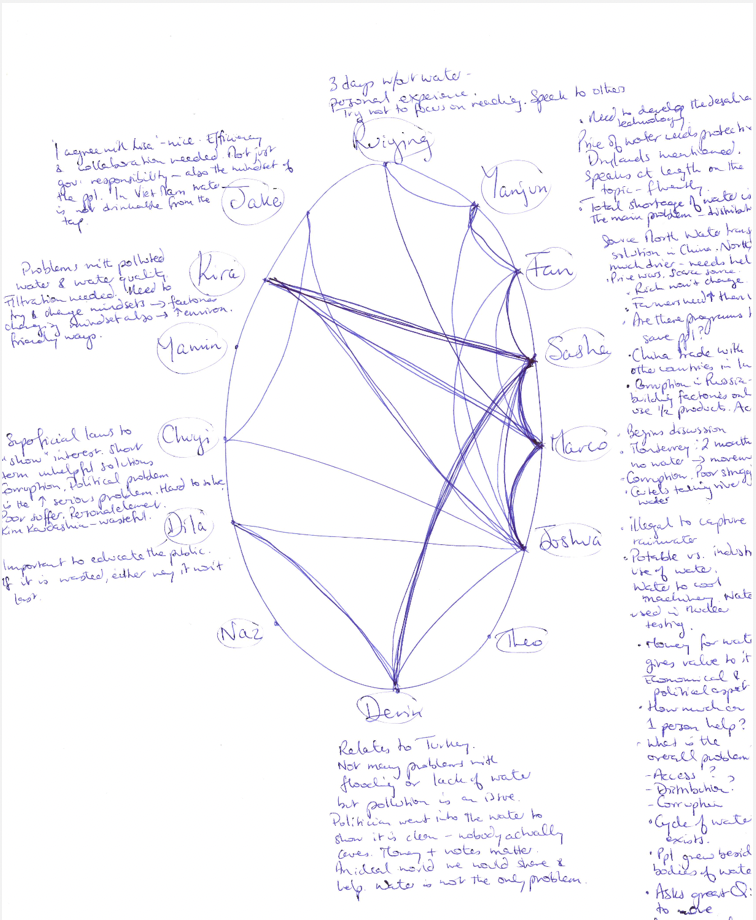 3 days w/out water -
personal experience.
Try not to focus on reading. Speak to others
Ruiying
'I agree with Kira' - nice. Efficiency
& collaboration needed. Not just
gov. responsibility - also the mindset of
the ppl. In Viet Nam water
is not drinkable from the
tap.
Jake
Problems with polluted
water & water quality.
Filtration needed. Need to
try & change mindsets → factories
changing mindset also → environ.
friendly ways.
Kira
Yamin
Superficial laws to
"show" interest. Short
term unhelpful solutions
Corruption. Political problem
is the ↑ serious problem. Hard to solve
Poor suffer. Personal element.
Kim Kardashian - wasteful.
Chuyi
Dila
Important to educate the public.
If it is wasted, either way it won't
last.
Naz
Yanjun
Fan
Sasha
Marco
Joshua
Theo
Derin
Relates to Turkey.
Not many problems with
flooding or lack of water
but pollution is an issue.
Politician went into the water to
show it is clean - nobody actually
cares. Money + votes matter.
An ideal world we would share &
help. Water is not the only problem.
• Need to develop the
technology
Price of water needs
Drylands mentioned.
Speaks at length on the
topic - fluently
• Total shortage of water is
The main problem -
North Water
solution in China. North
much drier - needs
• Price wars.
Rich won't change.
• Farmers need ↑
• Are there programs
save ppl?
• China trade with
other countries in
• Corruption in Russia -
building factories
use ½ products.
• Begins discussion
• Monterrey: 2 months
no water →
• Corruption. Poor
• Cartels taking river
water
• illegal to capture
rainwater
• Potable vs.
use of water.
Water to cool
machinery.
used in nuclear
testing.
• Money for
gives value to it
Economical &
political
• How much can
1 person help?
• What is the
overall problem
- Access?
- Distribution?
- Corruption
• Cycle of water
exists.
• Ppl grew
bodies of
• Asks great Q's
to move